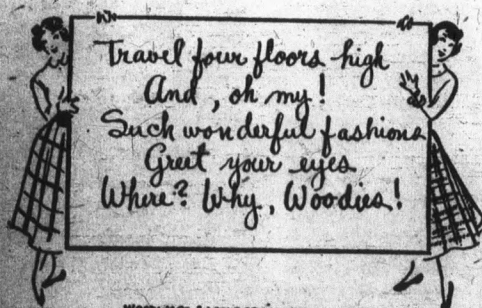 Travel four floors high
And, oh my!
Such wonderful fashions
Greet your eyes
Where? Why, Woodies!